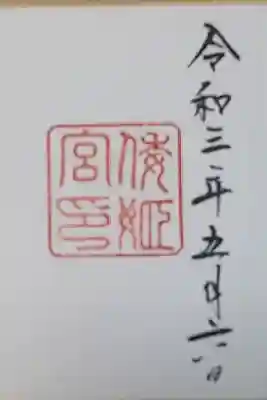 令和三年五月六日
倭姫
宮印